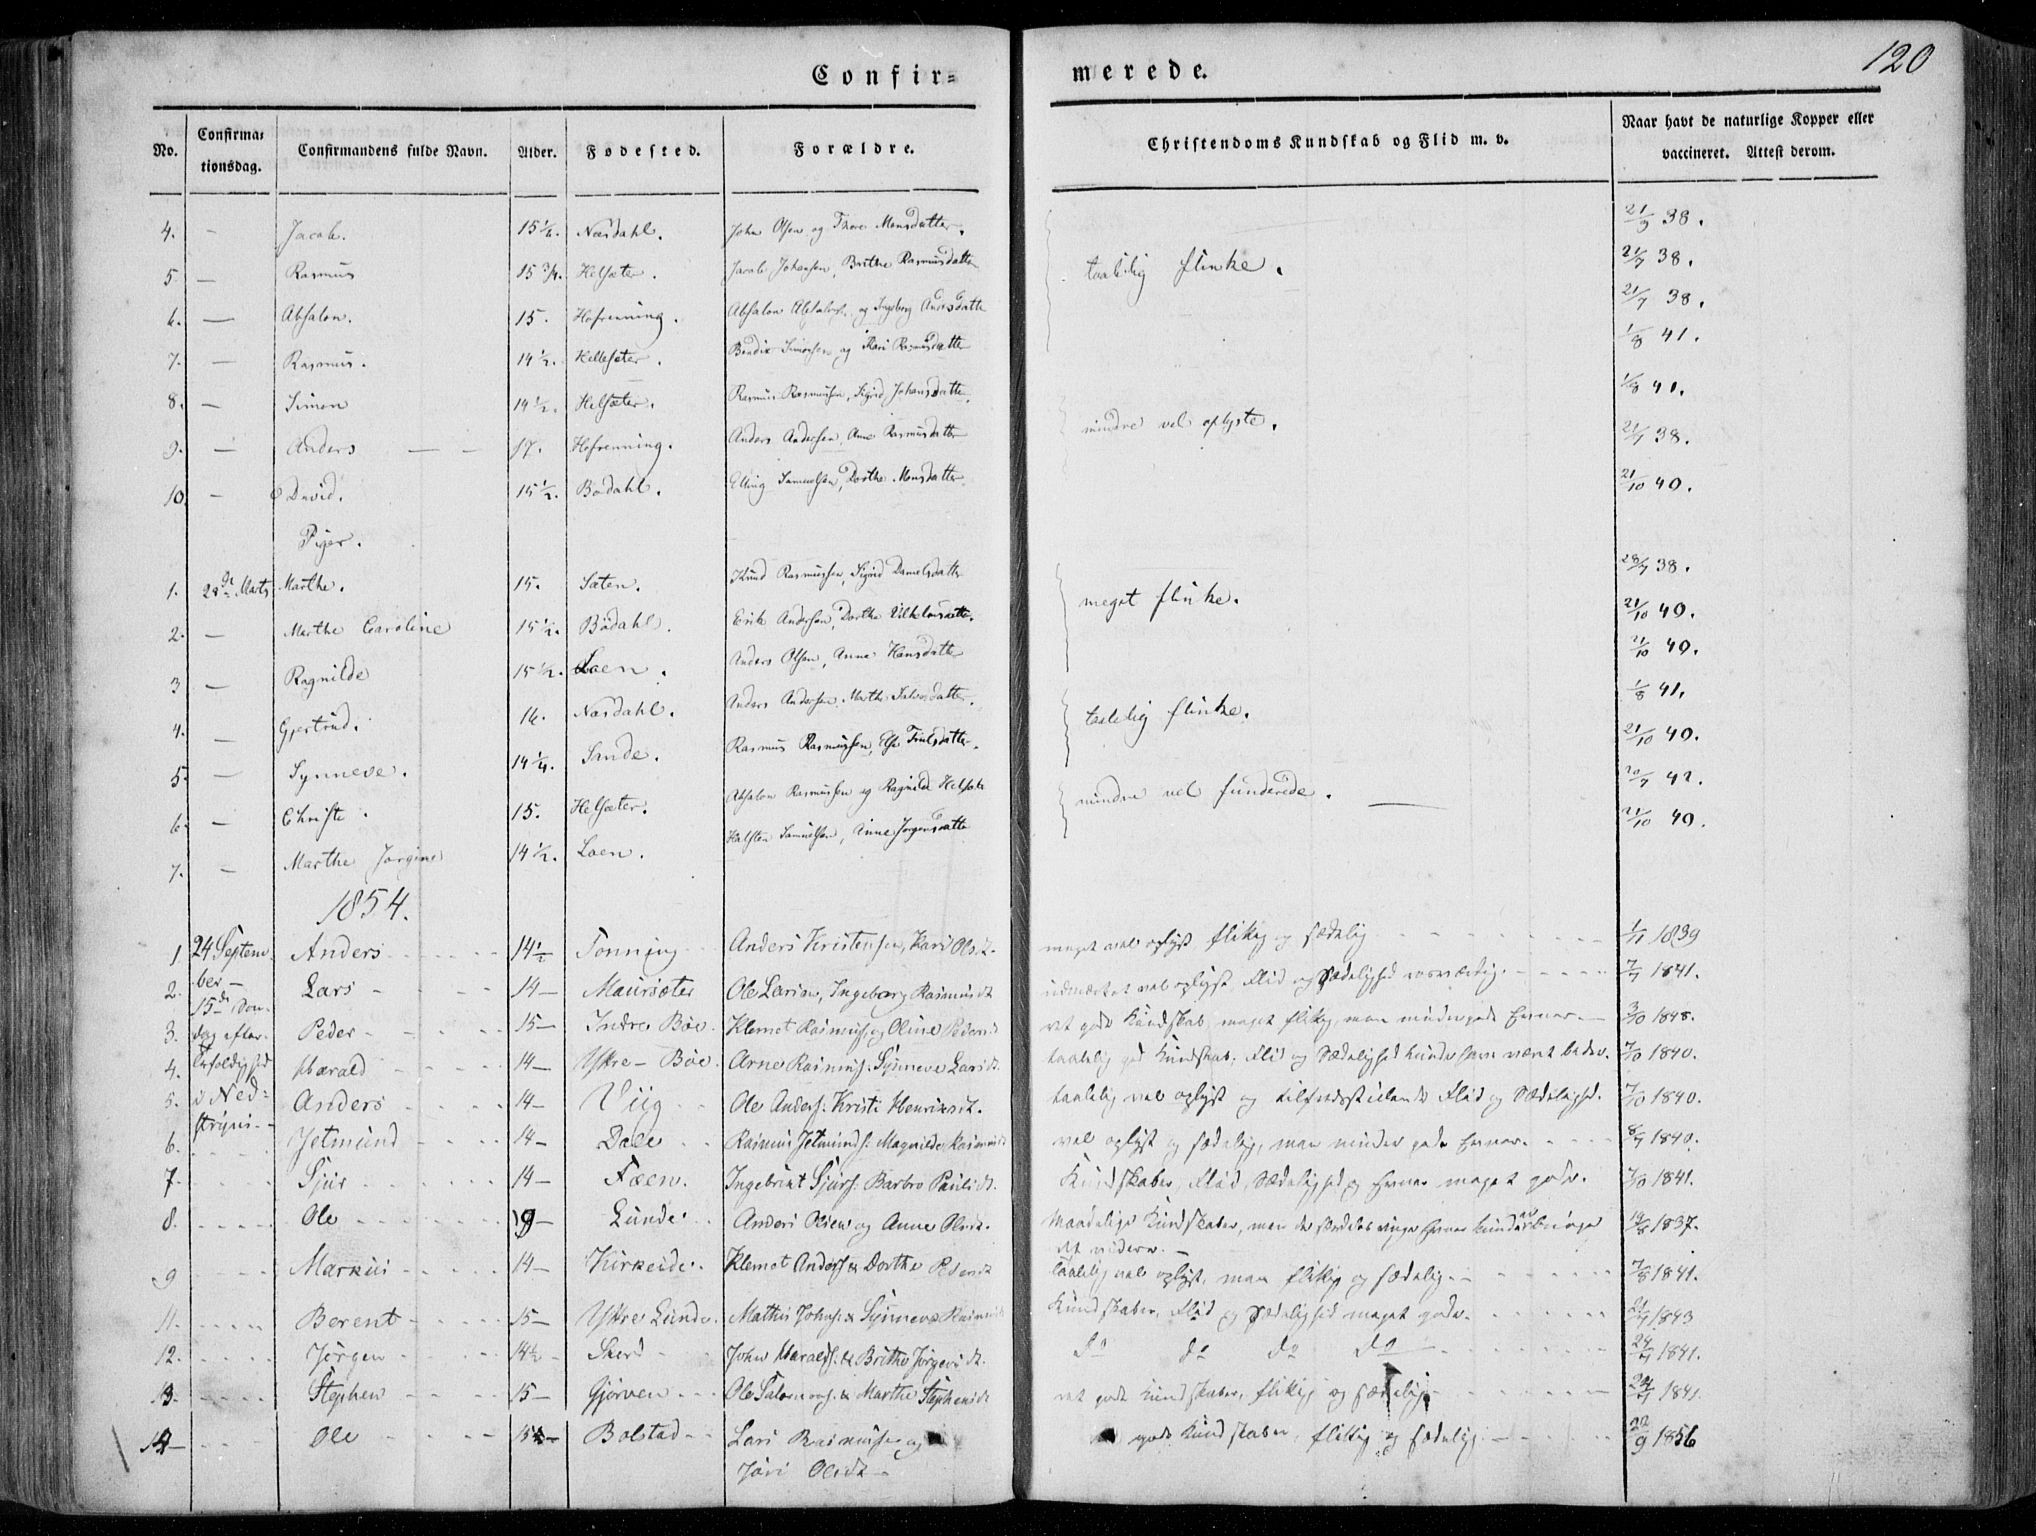 120
Confir= merede.
No. Confirma: tionsdag. Confirmandens fulde Navn. Alder. Fødested. Forældre. Christendoms Kundskab og Flid m. v. Naar havt de naturlige Kopper eller vaccineret. Attest derom.
4. — Jacob. 15 Næsdahl. John Olsen og Thore Monsdatter. 21/9 38.
5 — Rasmus 15 3/4. Helsæter. Jacob Johansen, Brithe Rasmusdatter taalelig flinke. 21/7 38.
6. — Absalon. 15. Hofrenning. Absalon Absalons. og Ingeborg Andersdatte 21/7 38.
7. — Rasmus. 14 1/2. Hellesæter. Bendix Simonsen og Kari Rasmusdatte 1/8 41.
8. — Simon 14 1/2. Helsæter. Rasmus Rasmussen, Sigrid Johansdatte. 1/8 41.
9. — Anders — — 17. Hofrenning. Anders Andersen, Ane Rasmusdatter mindre vel oplyste. 21/7 38.
10 — David. 15 1/2. Bødahl. Elling Samuelsen, Dorthe Monsdatter. 21/10 40.
Piger.
1. 28de Marts Marthe. 15. Sæten. Knud Rasmussen, Sigrid Danielsdatte 28/7 38.
2. — Marthe Caroline 15 1/2. Bødahl. Erik Andersen, Dorthe Vilhelmsdatte. meget flinke. 21/10 40.
3 — Ragnilde 15 1/2. Loen. Anders Olsen, Anne Hansdatte 21/10 40.
4. — Gjertrud. 16. Næsdahl. Anders Andersen, Marthe datter. taalelig flinke. 1/8 41.
5. — Synneve. 14 1/4. Sande. Rasmus Rasmussen, Else datter. 21/10 40.
6. — Christi. 15. Helsæter. Absalon Rasmussen og Ragnilde Helsæte mindre vel funderede. — 42.
7. — Marthe Jorgine 14 1/2. Loen. Halsten Samuelsen, Anne Jorgensdatte 21/10 40.
1854.
1 24 Septem Anders 14 1/2 Tonning Anders Kristensen, Kari Olsdt. meget vel oplyst, flitig og sædelig 1/11 1839
2. ber — Lars 14 — Maursæter Ole Larsen, Ingeborg Rasmusdt udmærket vel oplyst, Flid og Sædelighed rosværdig. 7/7 1841.
3. 15de Søn- dag efter Peder 15 — Indre Böe. Klemet Rasmuss. og Oline Pedersd ret gode Kundskab, meget flitig, men mindre gode Evner. — 3/10 1848.
4. Trefoldighed Harald 14 — Ystre — Böe. Arne Rasmuss. Synneve Larsdt. taalelig god Kundskab. Flid og Sædelighed kunde have været bedre. 7/10 1840.
5. i Ned= Anders 14 — Viig Ole Anders. Kristi Henriksdt. taalelig vel oplyst og tilfredsstillende Flid og Sædelighed. 7/10 1840.
6. stryns — Jetmund 14 — Dale Rasmus Jetmunds. Magnilde Rasmusdt vel oplyst og sædelig, men mindre gode Evner. 8/7 1840.
7 Sjur 14 — Fæen. Ingebrikt Sjurs. Barbro Paulsdt. Kundskaber, Flid, Sædelighed og Evner meget gode. 7/10 1841.
8. Ole 19 — Lunde Anders Olsen og Anne Olsdt. Maadelige Kundskaber, men de særdeles ringe Evner kunde ei bringe det videre. — 19/8 1837.
9 Markus 14 — Kirkeide. Klemet Anders. & Dorthe Pedersdt taalelig vel oplyst, men flitig og sædelig. 7/8 1841.
11. Berent 15 — Ystre Lunde. Mathis Johns. & Synneve Rasmusdt Kundskaber, Flid og Sædelighed meget gode. 21/7 1843
12. Jörgen 14 1/2 Skerd John Haralds. & Brithe Jörgensdt. do do do do 24/7 1841.
13. Stephen 15 — Gjörven Ole Salomons. & Marthe Stephensdt ret gode Kundskaber, flitig og sædelig 24/7 1841
14 — Ole 15 Bolstad Lars Rasmussen og gode Kundskaber, flittig og sædelig — 22/9 1856
Jöri Olsdt —